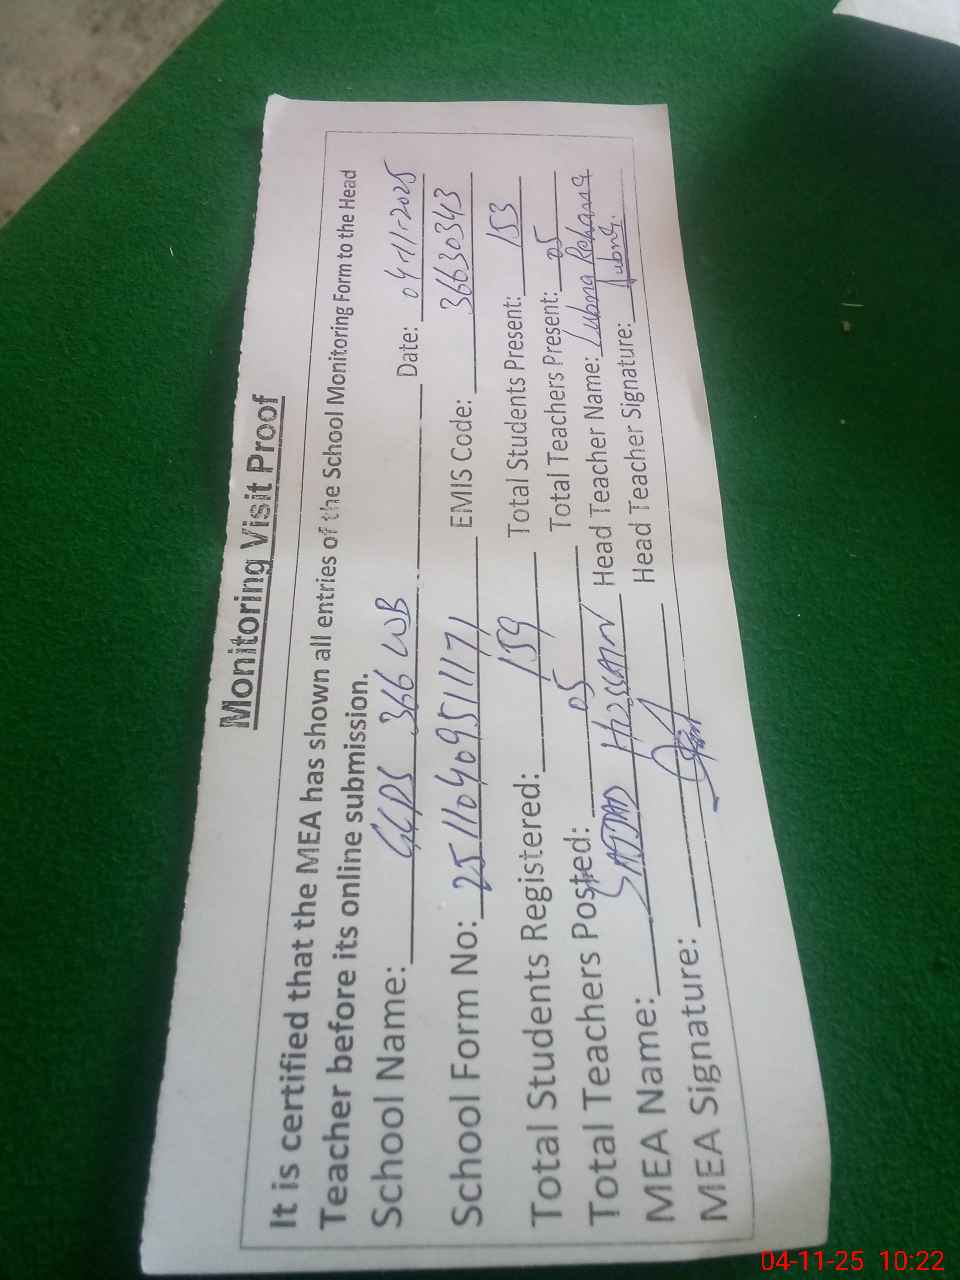 Monitoring Visit Proof
It is certified that the MEA has shown all entries of the School Monitoring Form to the Head
Teacher before its online submission.
School Name: GGPS 366 WB Date: 04-11-2025
School Form No: 25110409511171 EMIS Code: 36630343
Total Students Registered: 159 Total Students Present: 153
Total Teachers Posted: 05 Total Teachers Present: 05
MEA Name: SAJJAD HUSSAIN Head Teacher Name: Lubna Rehana
MEA Signature: Head Teacher Signature: Lubna.
04-11-25 10:22